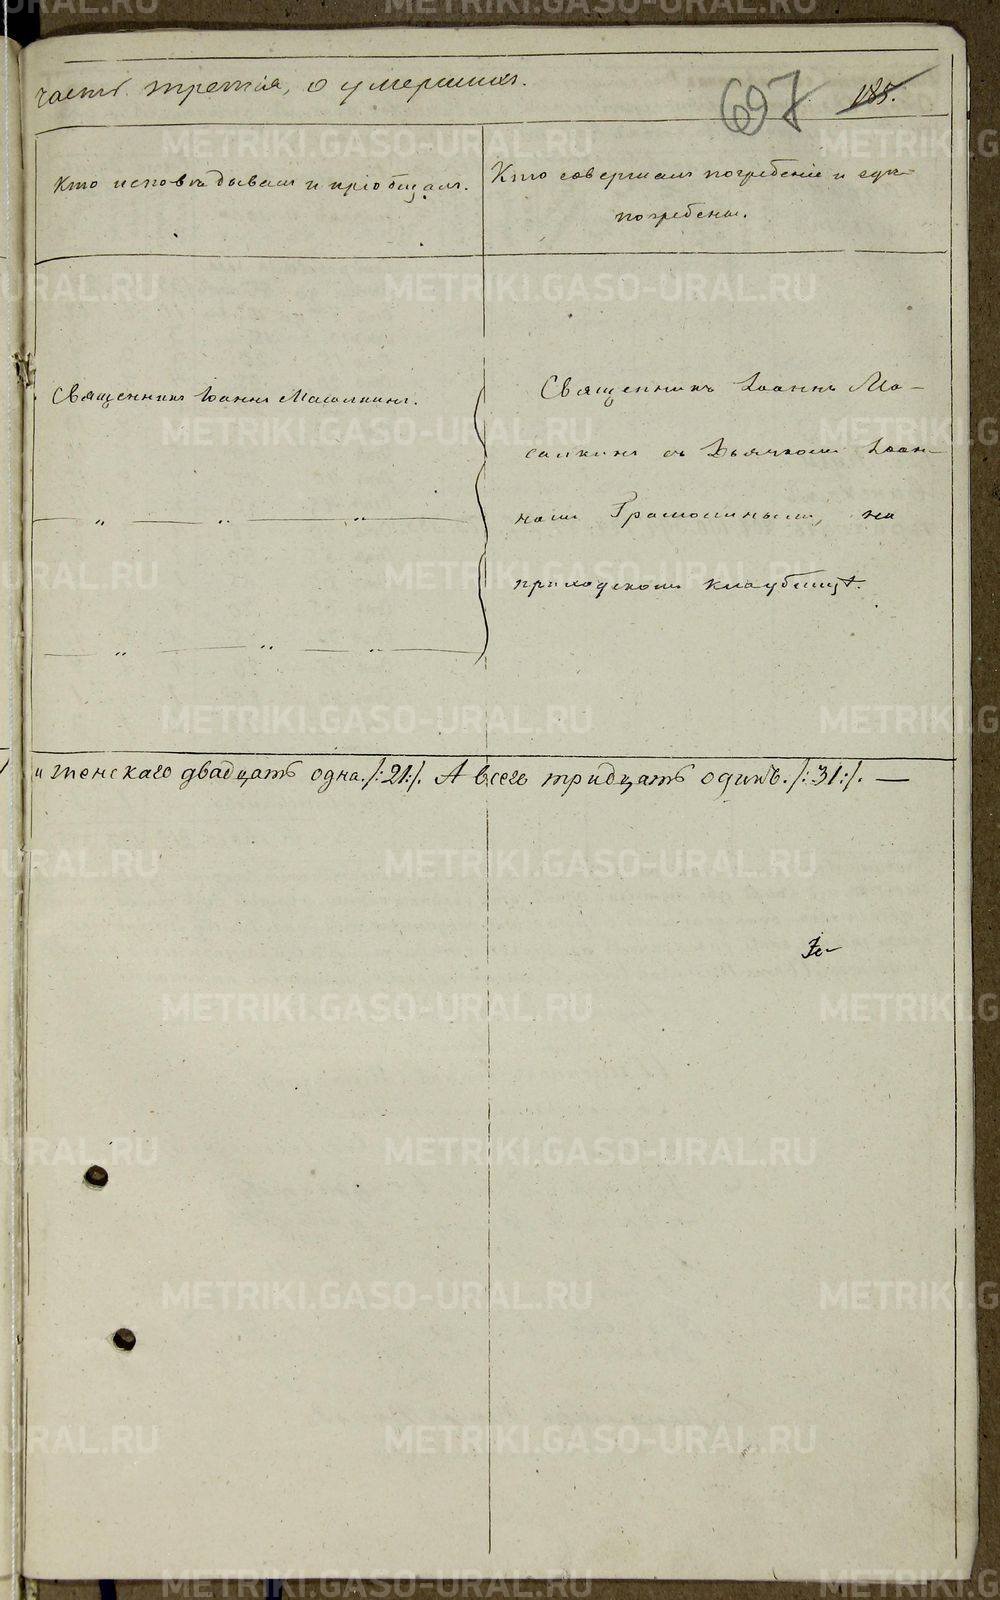 часть третія, о умершихъ.
697 185.
Кто исповѣдывалъ и пріобщалъ.
Кто совершалъ погребеніе и гдѣ
погребены.
Священникъ Іоаннъ Масалкинъ.
Священникъ Іоаннъ Ма-
салкинъ съ Дьячкомъ Іоан-
номъ Грамолинымъ, на
приходскомъ кладбищѣ.
— „ — „ — „ —
— „ — „ — „ —
и женскаго двадцать одна ./:21:/. А всего тридцать одинъ ./:31:/. —
METRIKI.GASO-URAL.RU